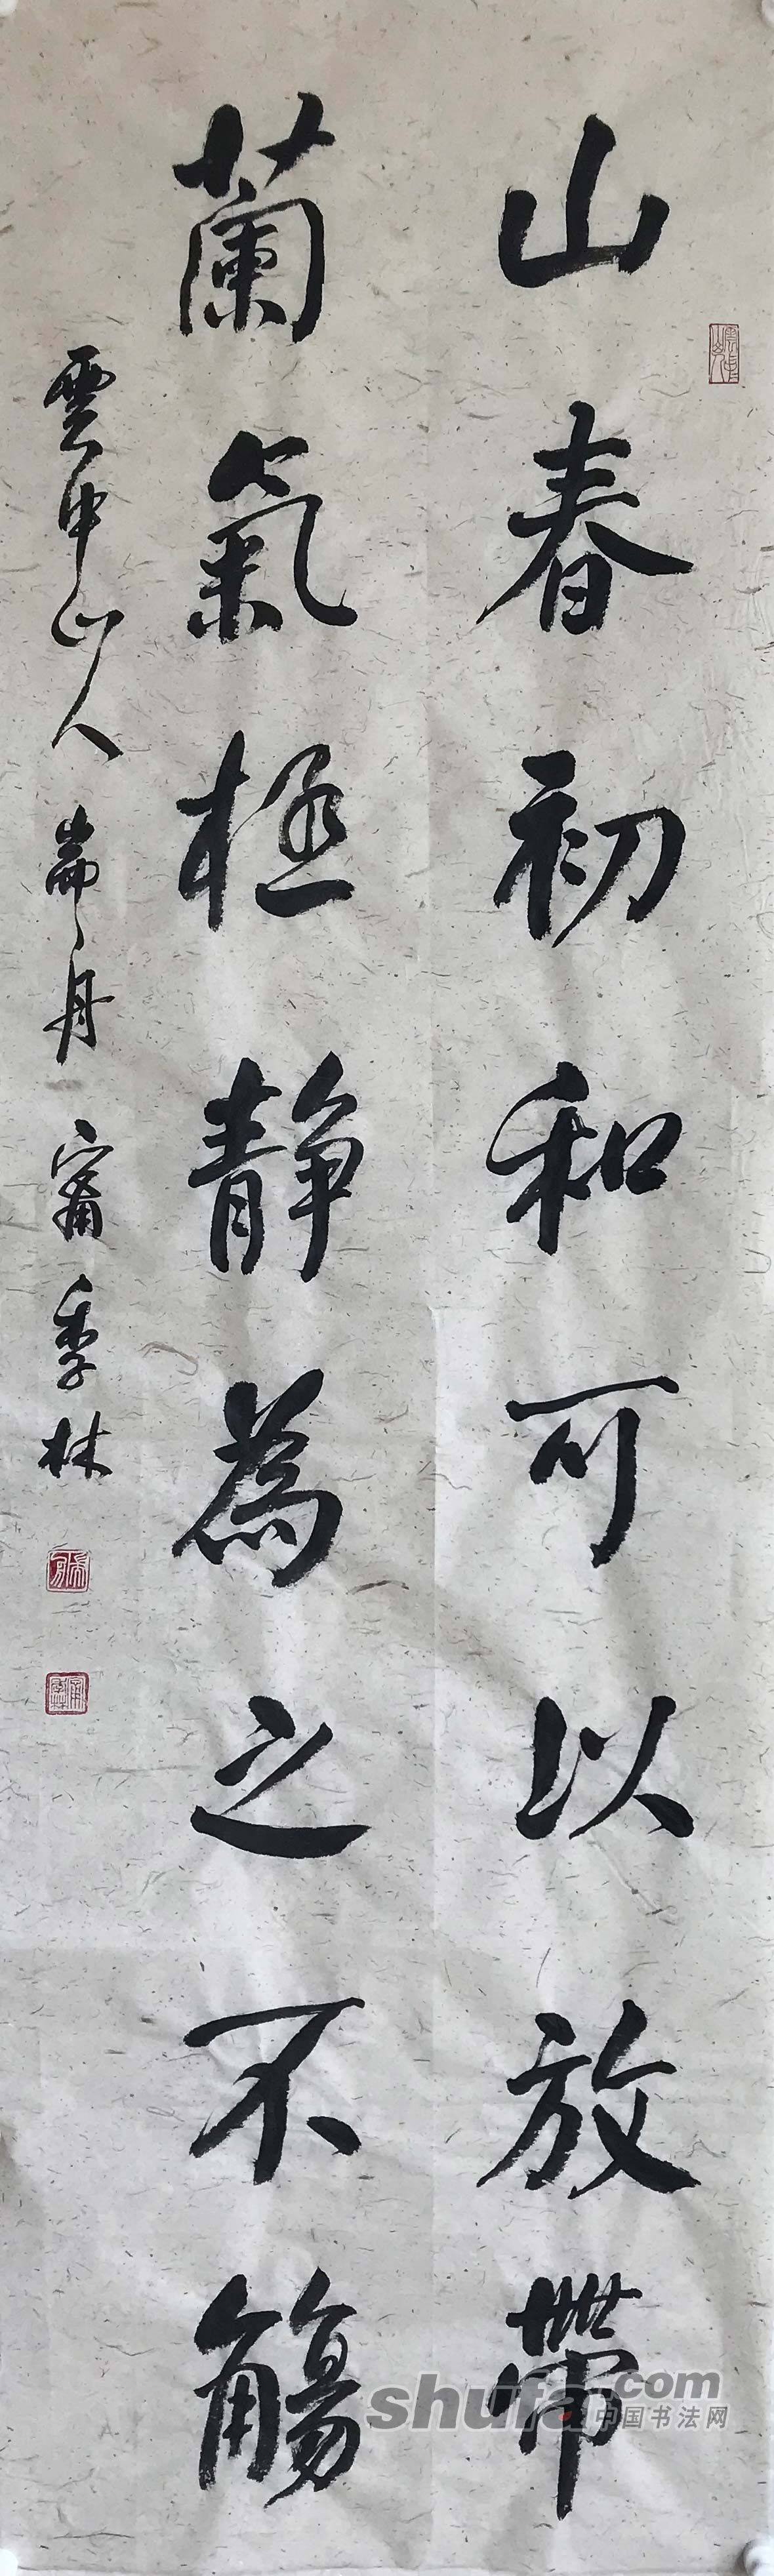 山春初和可以放帶
蘭氣極靜為之不觴
雲中山人 崙丹 甯季林
shufa.com
中国书法网